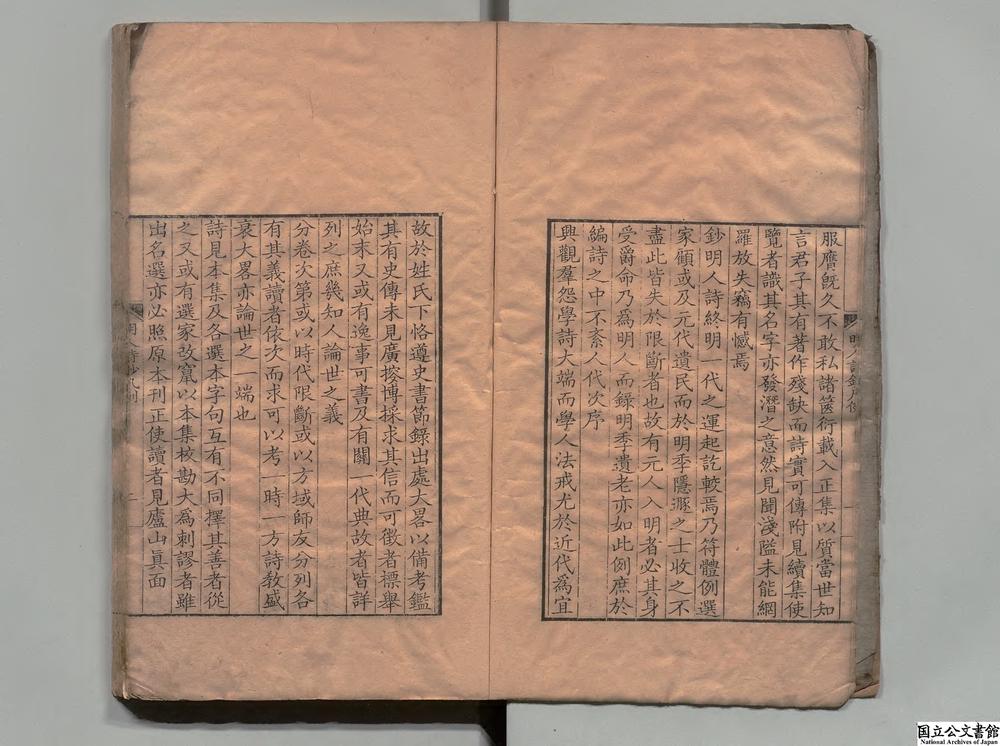 服膺旣久不敢私諸篋衍載入正集以質當世知
言君子其有著作殘缺而詩實可傳附見續集使
覽者識其名字亦發潛之意然見聞淺隘未能網
羅放失竊有憾焉
鈔明人詩終明一代之運起訖較焉乃符體例選
家顧或及元代遺民而於明季隱遯之士收之不
盡此皆失於限斷者也故有元人入明者必其身
受爵命乃爲明人而錄明季遺老亦如此例庶於
編詩之中不紊人代次序
興觀羣怨學詩大端而學人法戒尤於近代爲宜
故於姓氏下恪遵史書節錄出處大畧以備考鑑
其有史傳未見廣搜博採求其信而可徵者標舉
始末又或有逸事可書及有關一代典故者皆詳
列之庶幾知人論世之義
分卷次第或以時代限斷或以方域師友分列各
有其義讀者依次而求可以考一時一方詩敎盛
衰大畧亦論世之一端也
詩見本集及各選本字句互有不同擇其善者從
之又或有選家改竄以本集校勘大爲剌謬者雖
出名選亦必照原本刊正使讀者見廬山眞面
二
国立公文書館
National Archives of Japan